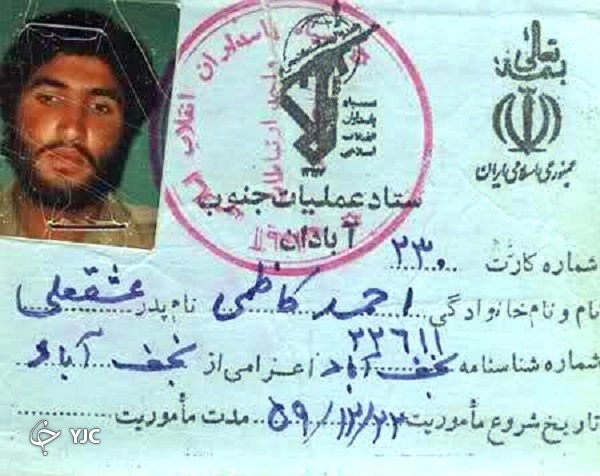 بسمه تعالی
جمهوری اسلامی ایران
سپاه
پاسداران
انقلاب
اسلامی
پاسداران انقلاب
واحد ارتباطات
ستاد عملیات جنوب
آبادان
شماره کارت ۲۳۰
نام و نام خانوادگی احمد کاظمی نام پدر عشقعلی
شماره شناسنامه ۲۲۶۱۱ نجف آباد اعزامی از نجف آباد
تاریخ شروع مأموریت ۵۹/۱۲/۲۲ مدت مأموریت
YJC